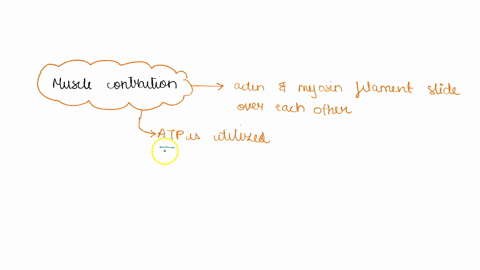 Muscle contraction
actin & myosin filament slide
over each other
ATP is utilized